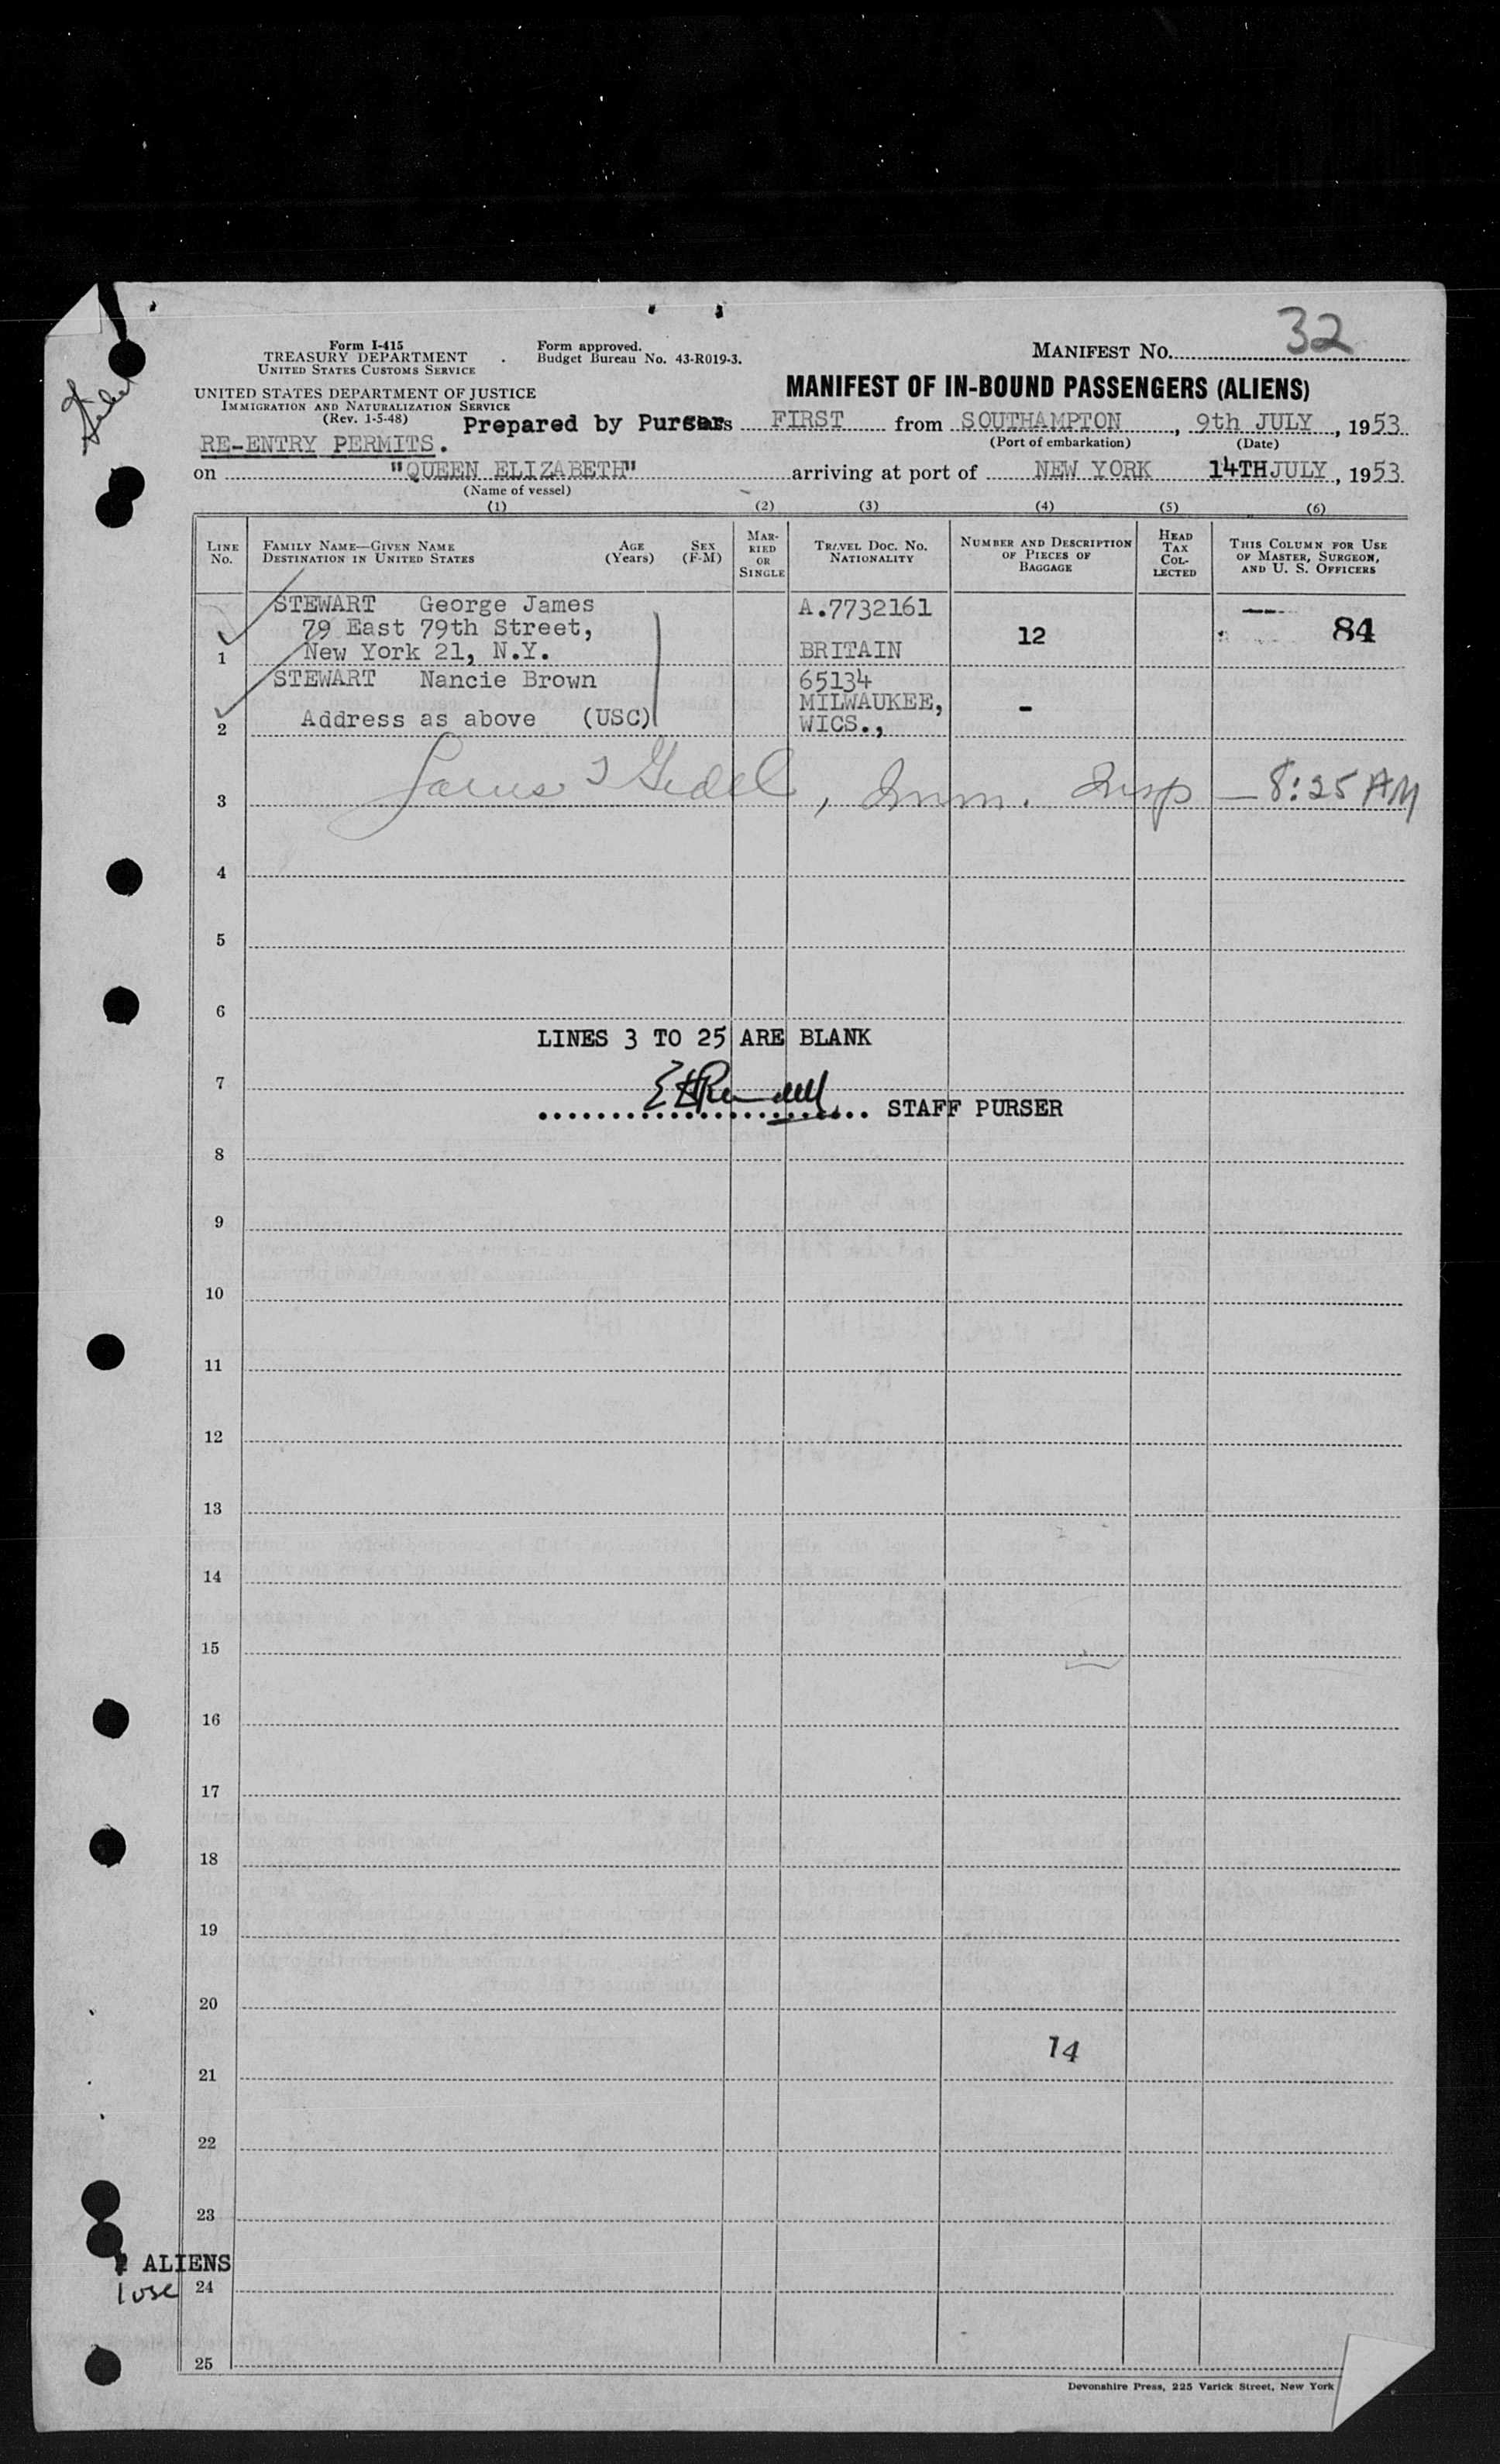 32
Form I-415
TREASURY DEPARTMENT
UNITED STATES CUSTOMS SERVICE
Form approved.
Budget Bureau No. 43-R019-3.
MANIFEST NO.
UNITED STATES DEPARTMENT OF JUSTICE
IMMIGRATION AND NATURALIZATION SERVICE
(Rev. 1-5-48)
MANIFEST OF IN-BOUND PASSENGERS (ALIENS)
Prepared by Pursers FIRST from SOUTHAMPTON, 9th JULY, 1953
(Port of embarkation) (Date)
RE-ENTRY PERMITS.
on "QUEEN ELIZABETH" arriving at port of NEW YORK 14TH JULY, 1953
(Name of vessel)
(1) (2) (3) (4) (5) (6)
LINE NO.
FAMILY NAME—GIVEN NAME
DESTINATION IN UNITED STATES
AGE (Years)
SEX (F-M)
MARRIED OR SINGLE
TRAVEL DOC. NO.
NATIONALITY
NUMBER AND DESCRIPTION OF PIECES OF BAGGAGE
HEAD TAX COLLECTED
THIS COLUMN FOR USE OF MASTER, SURGEON, AND U. S. OFFICERS
STEWART George James A.7732161
79 East 79th Street, 12 84
1 New York 21, N.Y. BRITAIN
STEWART Nancie Brown 65134
MILWAUKEE, -
2 Address as above (USC) WICS.,
3 , Imm. Insp — 8:25 AM
4
5
6
LINES 3 TO 25 ARE BLANK
7
STAFF PURSER
8
9
10
11
12
13
14
15
16
17
18
19
20
14
21
22
23
ALIENS
1 USC 24
25
Devonshire Press, 225 Varick Street, New York